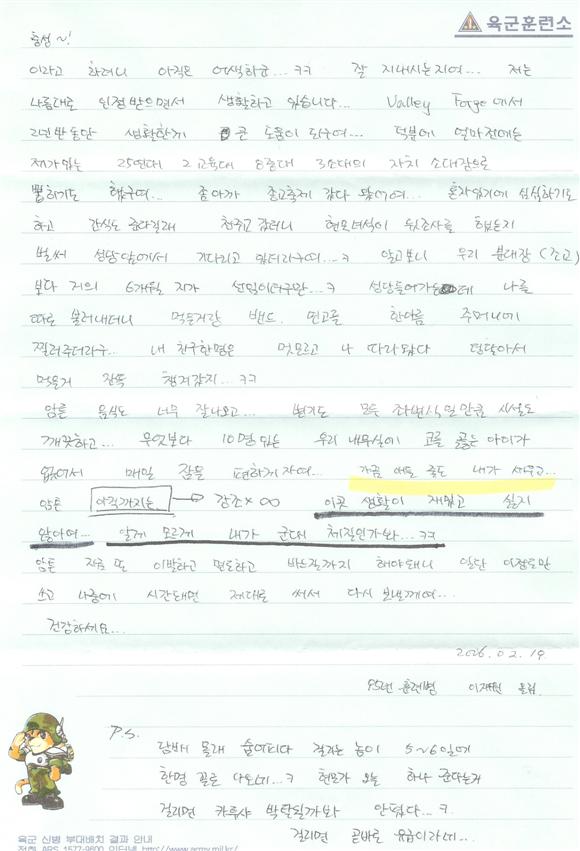 육군훈련소
충성~!
이라고 하려니 아직은 어색하군...ㅋㅋ 잘 지내시는지여... 저는
나름대로 인정받으면서 생활하고 있습니다... Valley Forge에서
2년 반동안 생활한게 큰 도움이 되구여... 덕분에 얼마전에는
제가있는 25연대 2교육대 8중대 3소대의 자치 소대장으로
뽑히기도 했구여... 혼자있기에 심심하기도
하고 간식도 준다길래 천주교 갔더니 뒷조사를 했는지
벌써 성당앞에서 기다리고 있더라구여...ㅋ 알고보니 우리 분대장(조교)
보다 거의 6개월 선임이더구만...ㅋ 성당들어가는데 나를
따로 불러내더니 먹을거랑 밴드, 면고를 한아름 주머니에
찔러주더라구... 내 친구한명은 멋모르고 나 따라왔다 덩달아서
먹을거 잔뜩 챙겨갔지...ㅋㅋ
암튼 음식도 너무 잘나오고... 변기도 모든 좌변식일만큼 시설도
깨끗하고... 무엇보다 10명 있는 우리 내무실에 코를 곯는 아이가
없어서 매일 잠을 편하게자여... 가끔 애들 줄도 내가 세우고...
암튼 아직까지는 → 강조×∞ 이곳 생활이 재밌고 싫지
않아여... 알게 모르게 내가 군대 체질인가봐...ㅋㅋ
암튼 지금 또 이발하고 면도하고 바느질까지 해야돼니 일단 이정도만
쓰고 나중에 시간돼면 제대로 써서 다시 보낼께여...
건강하세요...
2006.02.19
훈련병 올림
P.S.
담배 몰래 숨어피다 걸리는 놈이 5~6일에
한명 꼴로 나오네...ㅋ 오늘 하나 준다는거
걸리면 카투사 박탈될까봐 안폈다...ㅋ
걸리면 곧바로 유급이라네...
육군 신병 부대배치 결과 안내
전화 ARS 1577-9600 인터넷 http://www.army.mil.kr/